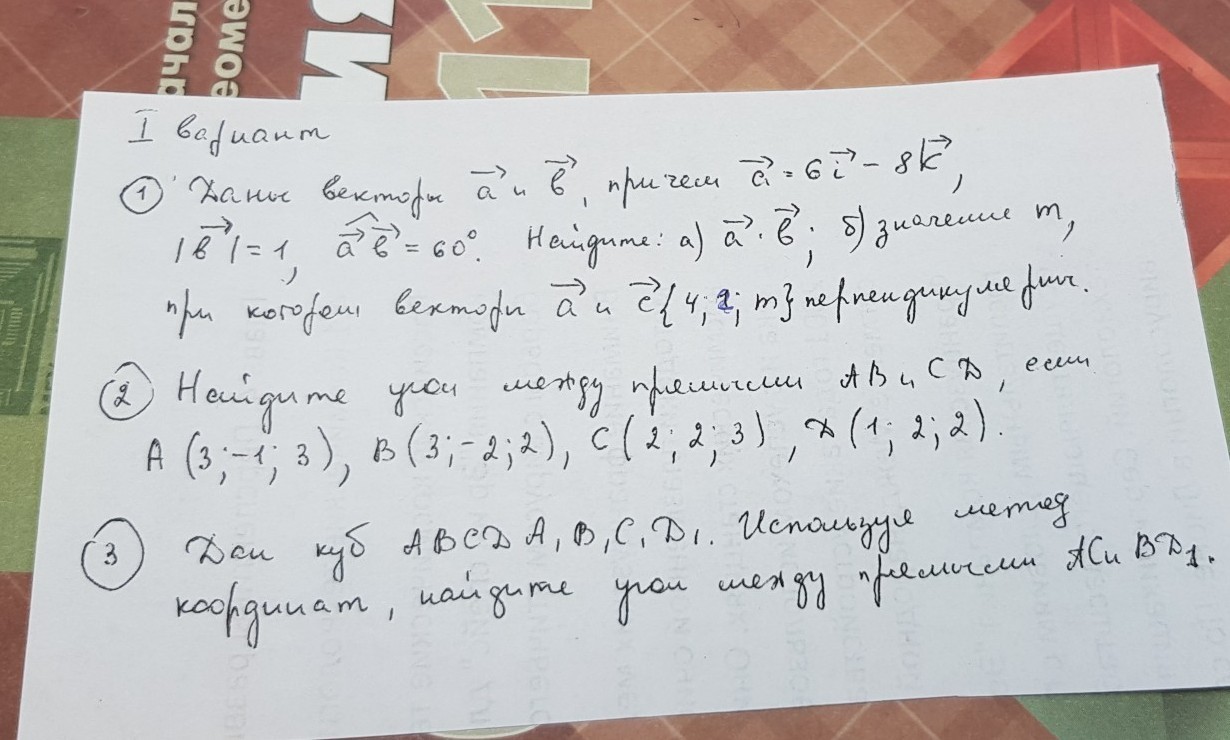 ачал
еоме
I вариант
① Даны векторы a⃗ и b⃗, причем a⃗ = 6i⃗ - 8k⃗,
|b⃗| = 1, a⃗ b⃗ = 60°. Найдите: а) a⃗ · b⃗; б) значение m,
при котором векторы a⃗ и c⃗{4; 1; m} перпендикулярны.
② Найдите угол между прямыми AB и CD, если
A (3; -1; 3), B (3; -2; 2), C (2; 2; 3), D (1; 2; 2).
③ Дан куб ABCDA₁B₁C₁D₁. Используя метод
координат, найдите угол между прямыми AC и BD₁.